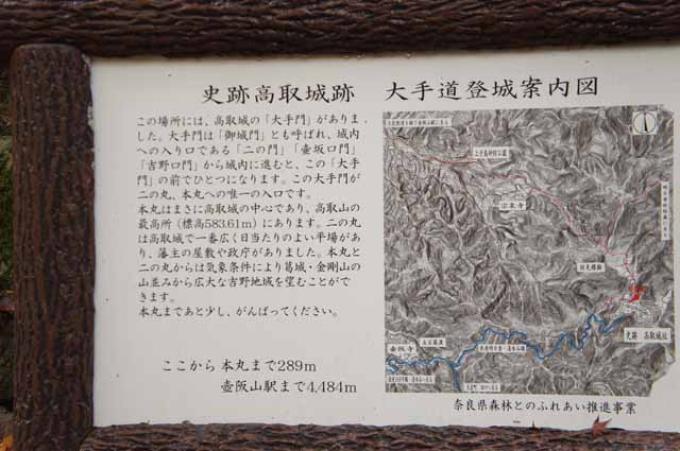 史跡高取城跡　大手道登城案内図
この場所には、高取城の「大手門」がありま
した。大手門は「御城門」とも呼ばれ、城内
への入り口である「二の門」「壷坂口門」
「吉野口門」から城内に進むと、この「大手
門」の前でひとつになります。この大手門が
二の丸、本丸への唯一の入口です。
本丸はまさに高取城の中心であり、高取山の
最高所（標高583.61m）にあります。二の丸
は高取城で一番広く日当たりのよい平場があ
り、藩主の屋敷や政庁がありました。本丸と
二の丸からは気象条件により葛城・金剛山の
山並みから広大な吉野地域を望むことがで
きます。
本丸まであと少し、がんばってください。
ここから 本丸まで289m
壷阪山駅まで4,484m
上子島砂防公園
宗泉寺
国見櫓跡
史跡 高取城址
壷阪寺
五百羅漢
奈良県森林とのふれあい推進事業